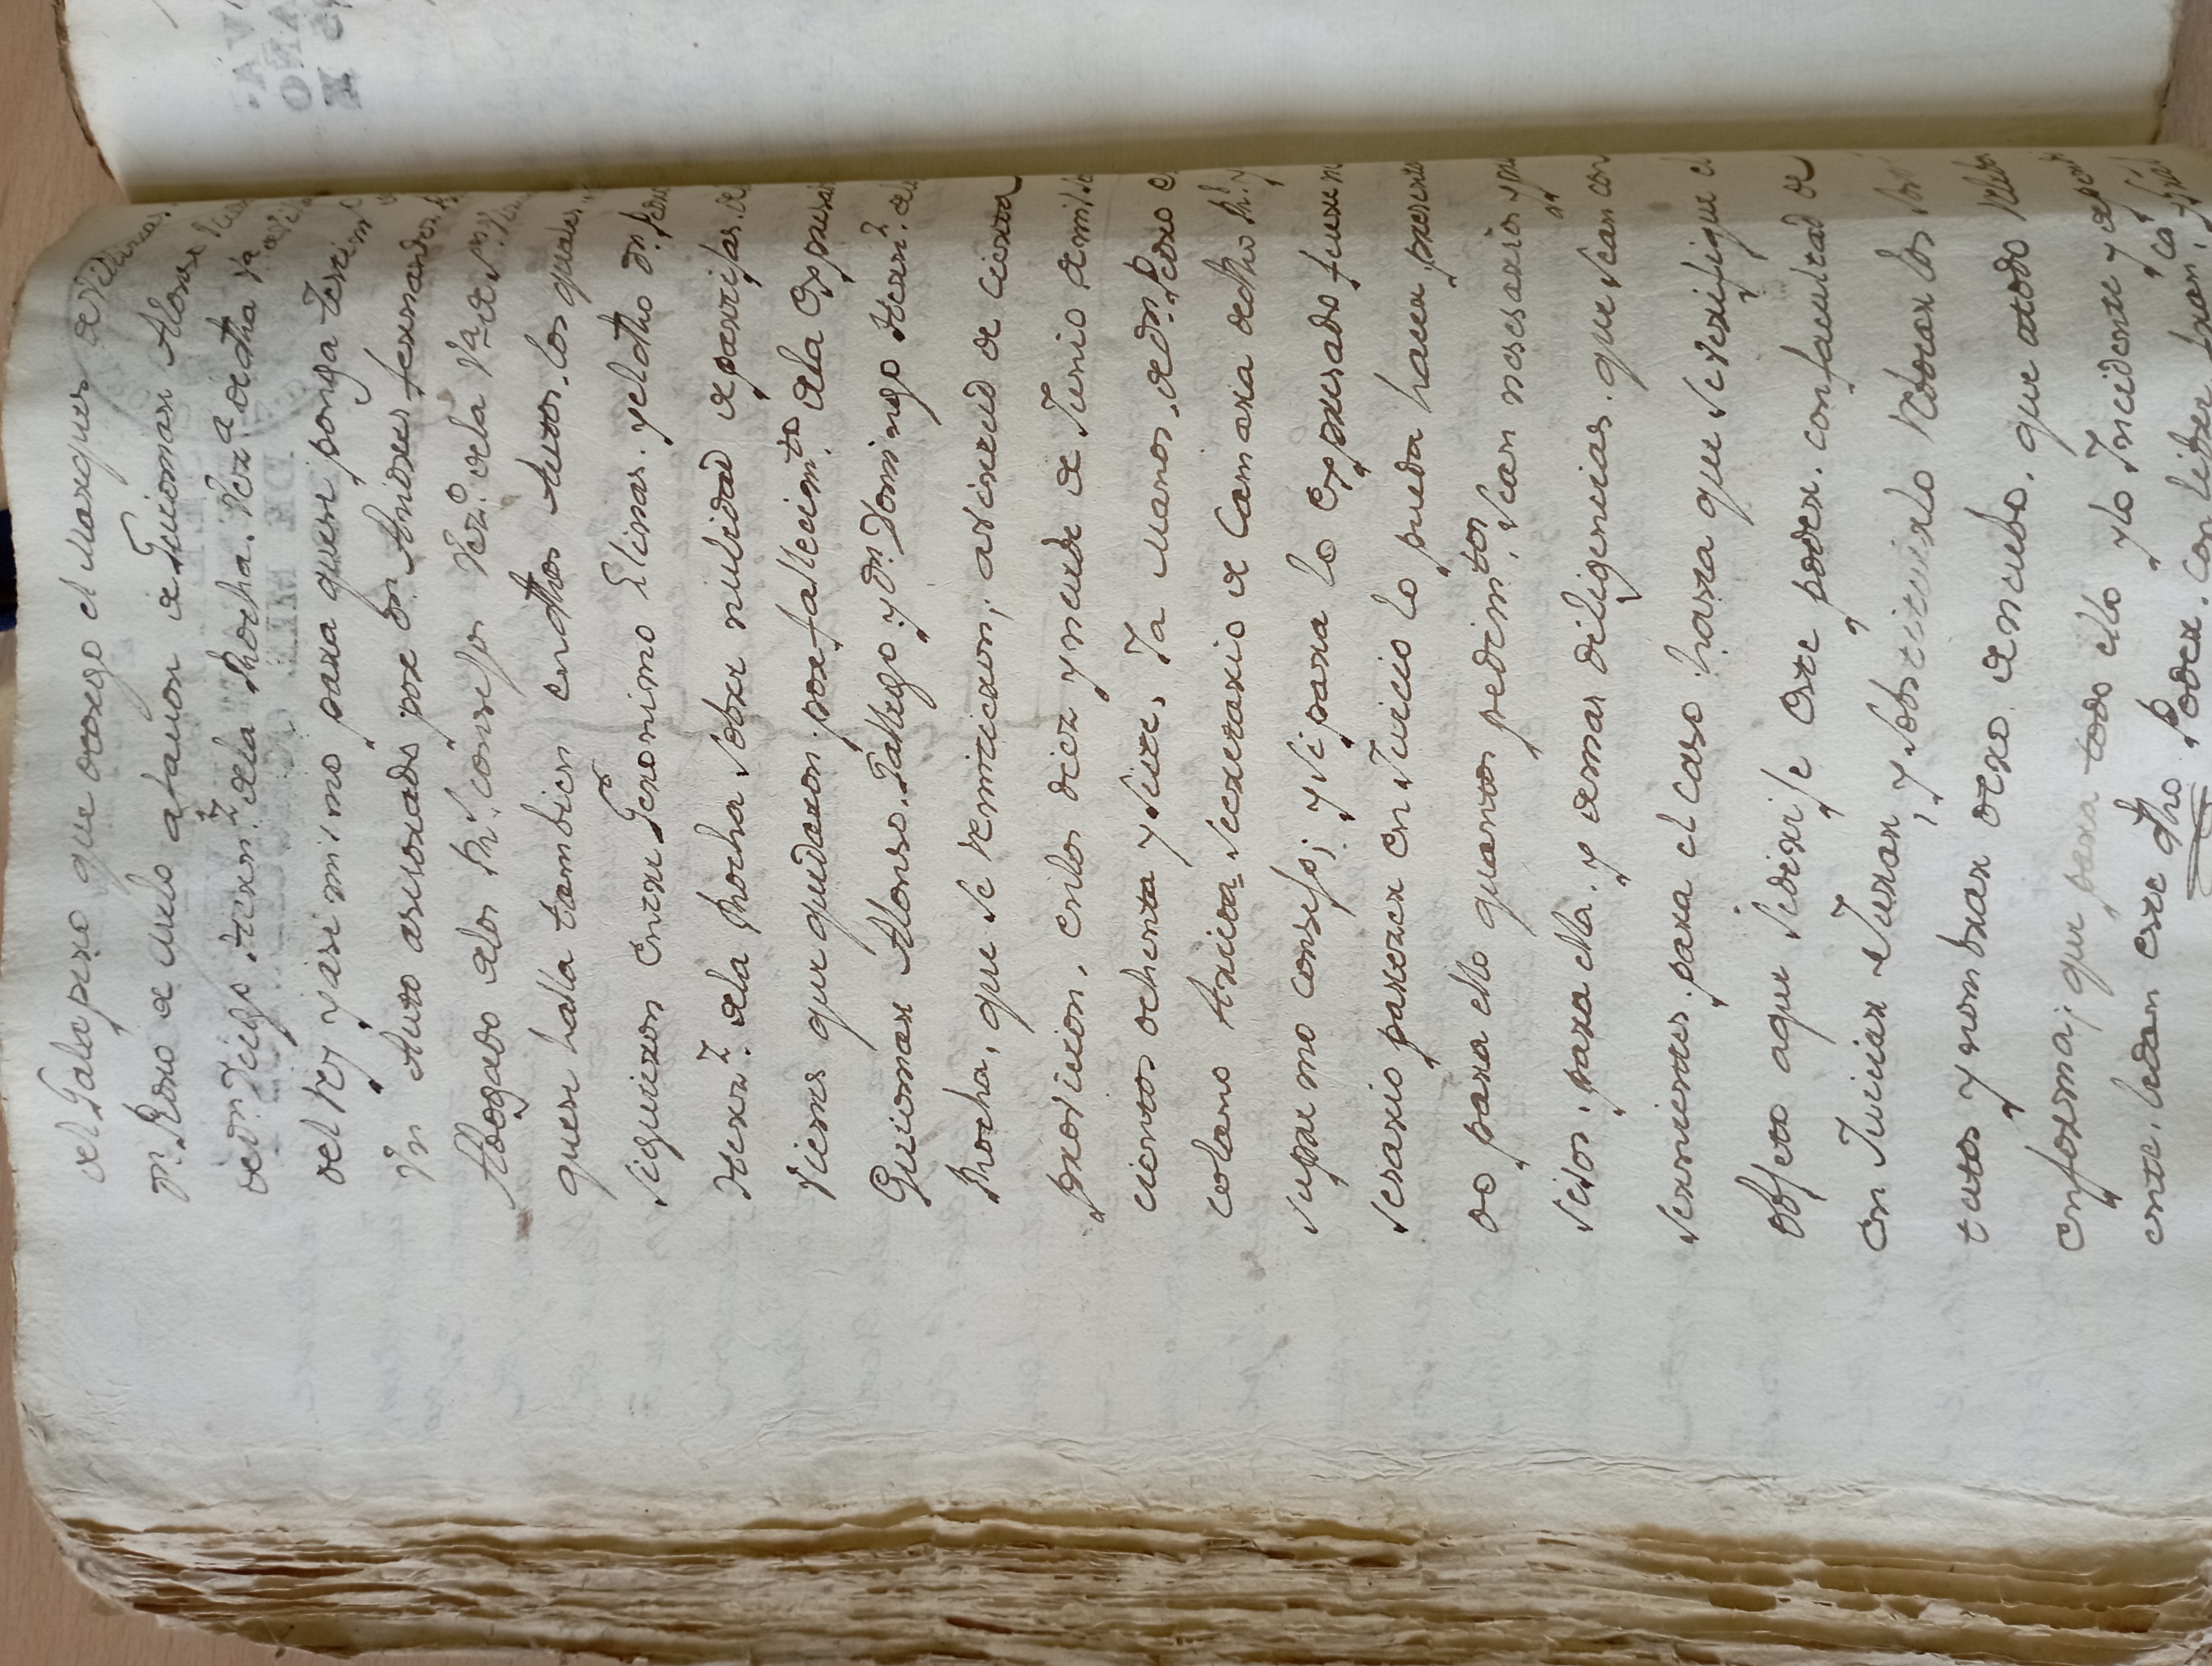 del Galapero que otorgo el Marques de
Dn. Pedro de Melo afauor de Guiomar Alonso
de Dn. Diego Hernz. dela Rocha. Veza. de dha Va.
del Rey y asi mismo para quese ponga testimo
Vn Auto asesorado por Dn. Andres fernandez
Abogado delos Rs. consejos Vezo. dela Va. de Sn.
quese halla tambien en dhos Autos. los quales
siguieron entre Geronimo Elinas. y el dho Dn. Pedro
Hernz. dela Rocha sobre nulidad de partijas. de
Vienes que quedaron por fallecimto. dela expresa
Guiomar Alonso. Gallego y Dn. Domingo Hernz. dela
Rocha, que se remitieron, avirtud de cierta
provicion, enlos diez y nuebe de Junio de mil se
cientos ochenta y siete, Ja Manos de Dn. Pedro es
colano Arrieta secretario de Camara de dho Rl. y
supremo consejo; y si para lo expresado fuere ne
sesario parezer en Juicio lo pueda hacer presentan
do para ello quantos pedimtos. sean nesesarios y pre
sisos. para ella. y demas diligencias. que sean con
sernientes. para el caso hasta que severifique el
objeto aque sedirije este poder. con facultad de
en Juiciar Jurar, y sobstituirlo Rebocar los sosti
tutos y nombrar otro de nuebo. que atodo Releban
enforma; que para todo ello y lo Incidente y dependi
ente. ledan este dho Poder. con libre franca.